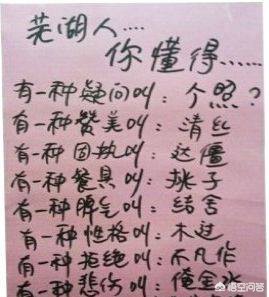 芜湖人....
你懂得......
有一种疑问叫：个照？
有一种赞美叫：清丝
有一种固执叫：达僵
有一种餐具叫：挑子
有一种脾气叫：结舍
有一种性格叫：木过
有一种拒绝叫：不凡作
有一种悲伤叫：俺
悟空问答